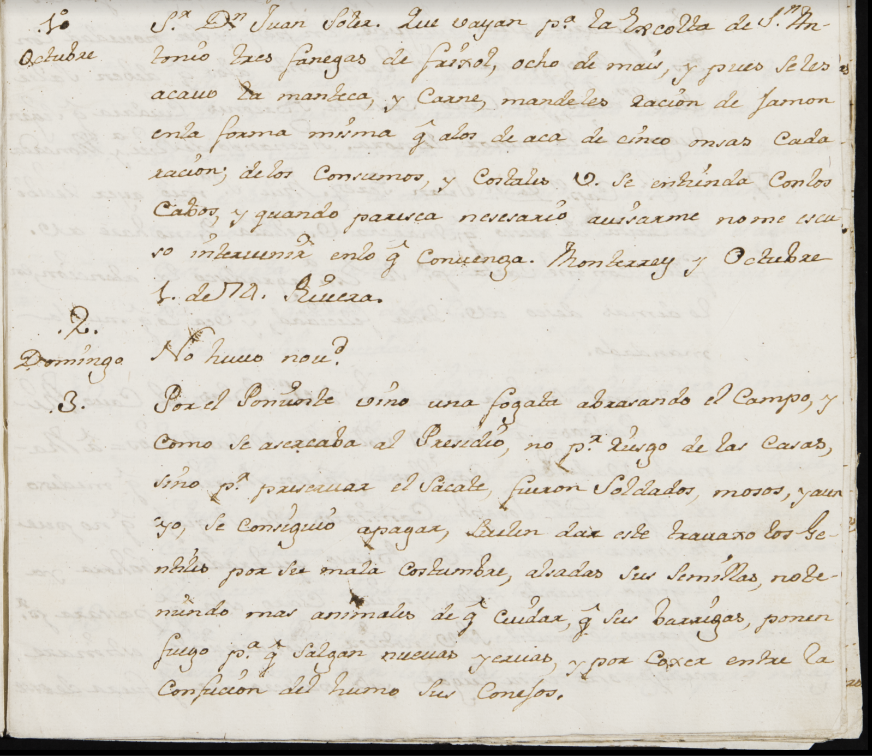 1º
Octubre
S.r D.n Juan Soler. Que vayan p.a la Escolta de S.n An-
tonio tres fanegas de frixol, ocho de mais, y pues se les
acavo la manteca, y Carne, mandeles racion de Jamon
enla forma misma q̃ alos de aca de cinco onsas Cada
racion; delos Consumos, y Costales v. se entienda Conlos
Cabos, y quando paresca nesesario avisarme nome escu
so intervenir enlo q̃ Convenga. Monterrey y Octubre
1. de 74. Rivera.
.2.
Domingo
No huvo nov.d
.3.
Por el Poniente vino una fogata abrasando el Campo, y
Como se asercaba al Presidio, no p.r riesgo de las Casas,
sino p.a preservar el Sacate, fueron Soldados, mosos, y aun
yo, se Consiguio apagar, Suelen dar este travaxo los Ge-
ntiles por su mala Costumbre, alsadas sus Semillas, note-
niendo mas animales de q̃ Cuidar, q̃ sus barrigas, ponen
fuego p.a q̃ Salgan nuevas yervas, y por Coxer entre la
Confucion del humo sus Conejos.